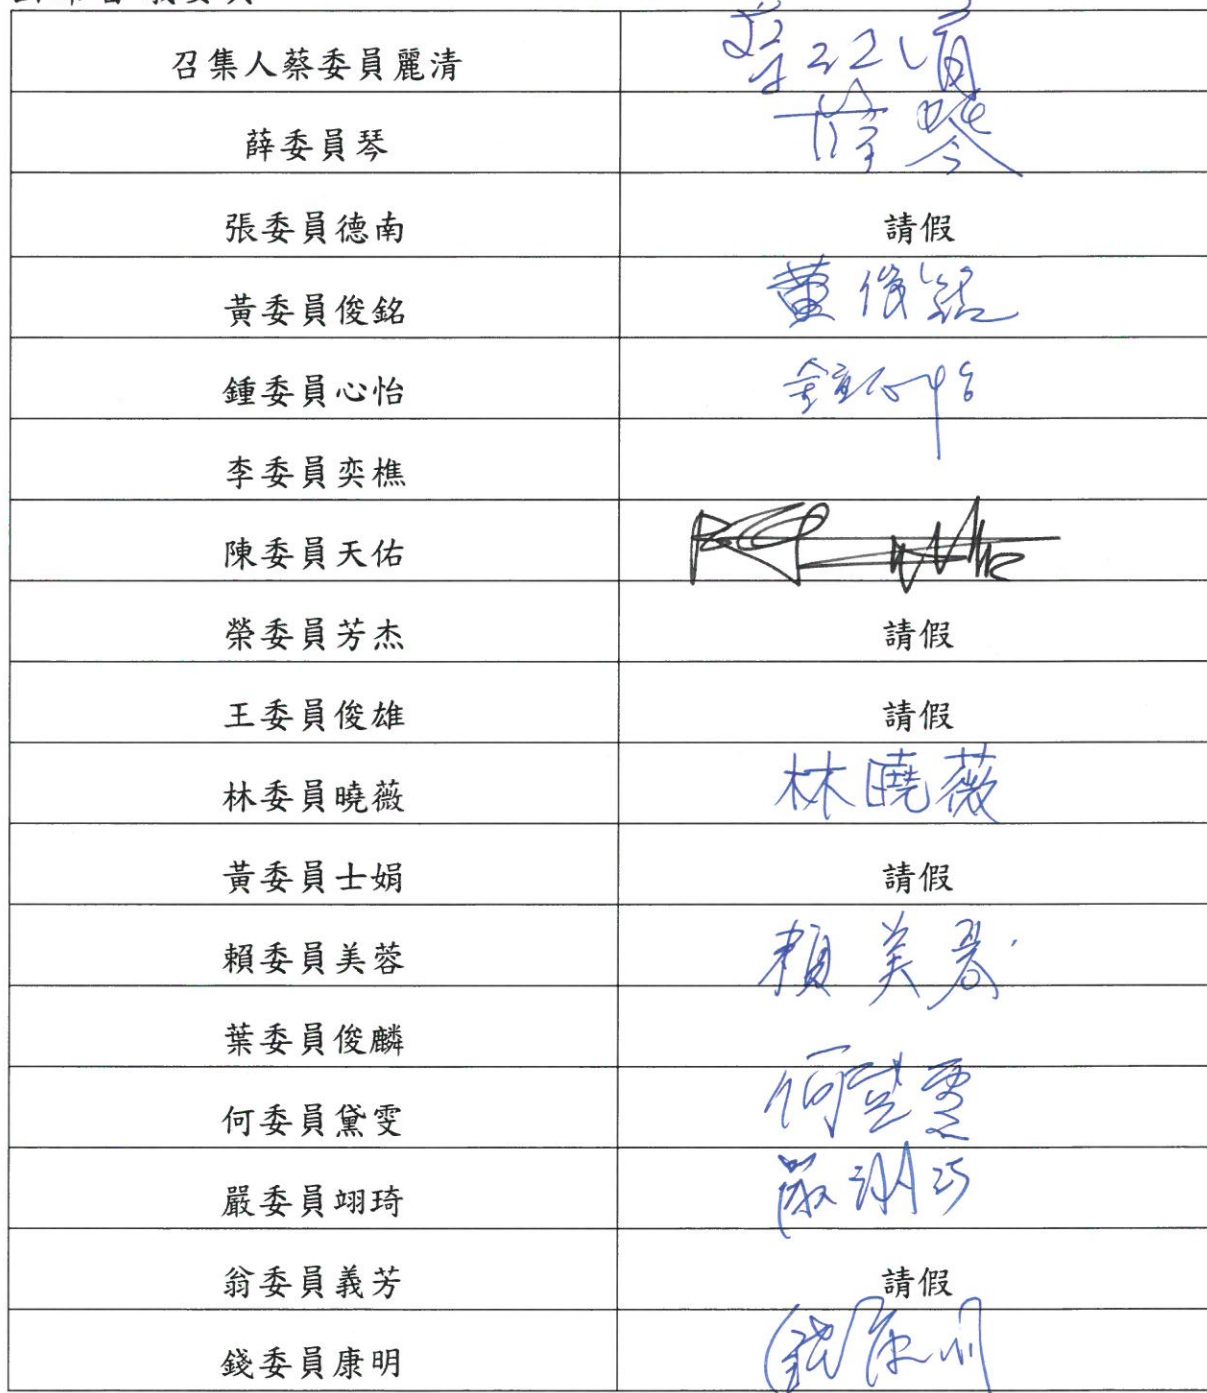 召集人蔡委員麗清
薛委員琴 薛琴
張委員德南 請假
黃委員俊銘 黃俊銘
鍾委員心怡 鍾心怡
李委員奕樵
陳委員天佑
榮委員芳杰 請假
王委員俊雄 請假
林委員曉薇 林曉薇
黃委員士娟 請假
賴委員美蓉 賴美蓉
葉委員俊麟
何委員黛雯 何黛雯
嚴委員翊琦
翁委員義芳 請假
錢委員康明 錢康明